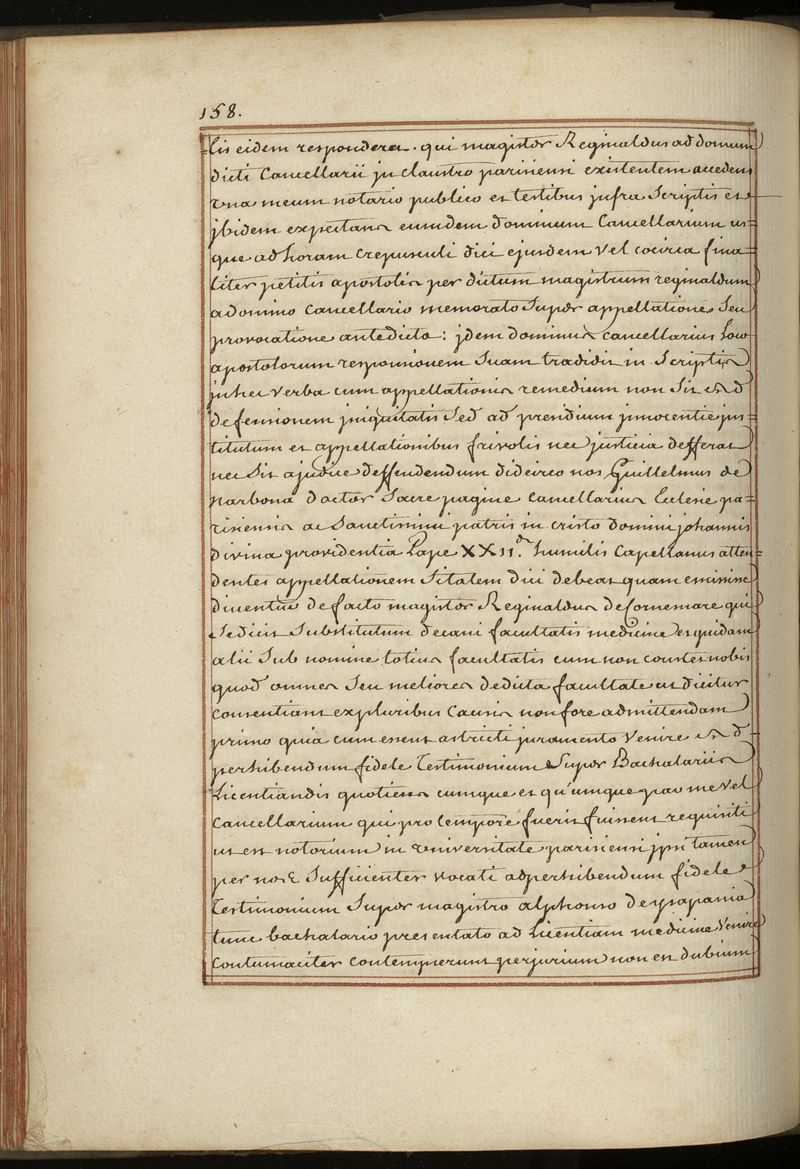 158.
lis eidem responderet. qui magister Reginaldus ad domum
dicti Cancellarii in claustro parisiensi existentem accedens
una mecum notario publico et testibus infra scriptis et
jbidem expectans eumdem dominum Cancellarium us=
que ad horam crepusculi diei ejusdem vel cocirca fina=
liter petitis apostolis per dictum magistrum reginaldum
a domino cancellario memorato super appellatione seu
provocatione antedicta: jdem dominus cancellarius loco
apostolorum responsionem suam tradidit in scriptis
in hec verba cum appellationis remedium non sit ad
defensionem iniquitatis sed ad presidium innocentie ins=
titutum et appellationibus frivolis nec justicia defferat
nec sit a judice deffendendum idcirco nos Guillelmus de
Narbona doctor sacre pagine cancellarius Eclesie pa=
risiensis ac sanctissimi patris in cristo domini johannis
divina providentia Pape XXII. humilis Capellanus atten=
dentes appellationem si talem dici debeat quam emisisse
dicentur de facto magister Reginaldus de Cornemare qui
se dicit substitutum decani facultatis medicine et quidam
alii sub nomine totius facultatis cum non constet nobis
quod omnes seu meliores de dicta facultate ut dicitur
consentiant ex pluribus causis non fore admittendam
primo quia cum essent astricti juramento venire ad
perhibendum fidele testimonium super Bachalariis
Licentiandis quotiens cumque et qu'umque per me vel
cancellarium qui pro tempore fuerit fuissent requisiti
ut est notorium in universitate parisiensi ipsi tamen
per nos sufficienter vocati ad perhibendum fidele
testimonium super magistro alphonso de yspania
tunc bachalario presentato ad Licentiam medicine venire
contumaciter contempserunt perjurium non est dubium